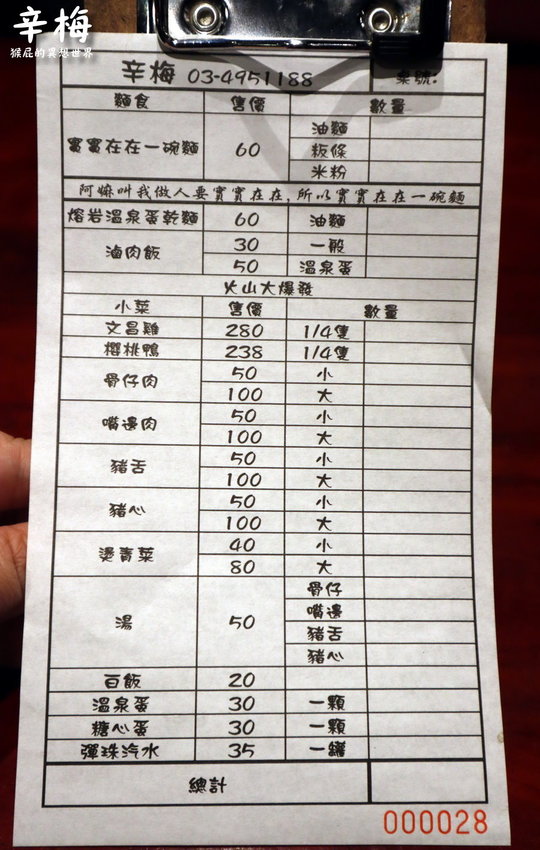 辛梅
猴屁的異想世界
辛梅 03-4951188 桌號:
麵食 售價 數量
實實在在一碗麵 60 油麵
粄條
米粉
阿嫲叫我做人要實實在在,所以實實在在一碗麵
熔岩溫泉蛋乾麵 60 油麵
滷肉飯 30 一般
50 溫泉蛋
火山大爆發
小菜 售價 數量
文昌雞 280 1/4隻
櫻桃鴨 238 1/4隻
骨仔肉 50 小
100 大
嘴邊肉 50 小
100 大
豬舌 50 小
100 大
豬心 50 小
100 大
燙青菜 40 小
80 大
湯 50 骨仔
嘴邊
豬舌
豬心
白飯 20
溫泉蛋 30 一顆
糖心蛋 30 一顆
彈珠汽水 35 一罐
總計
000028